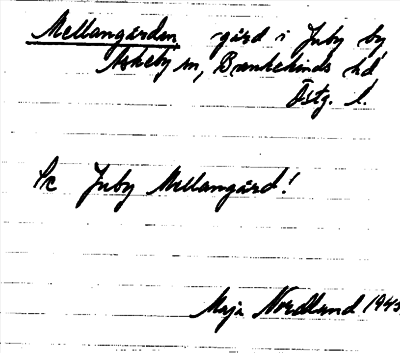 Mellangården gård i Juby by,
Askeby sn, Bankekinds hd
Östg. l.
Se Juby Mellangård!
Maja Nordland 1945